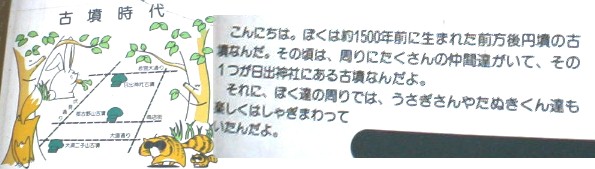 古墳時代
日出神社古墳
商店街
大道通り
こんにちは。ぼくは約1500年前に生まれた前方後円墳の古
墳なんだ。その頃は、周りにたくさんの仲間達がいて、その
1つが日出神社にある古墳なんだよ。
それに、ぼく達の周りでは、うさぎさんやたぬきくん達も
楽しくはしゃぎまわって
いたんだよ。